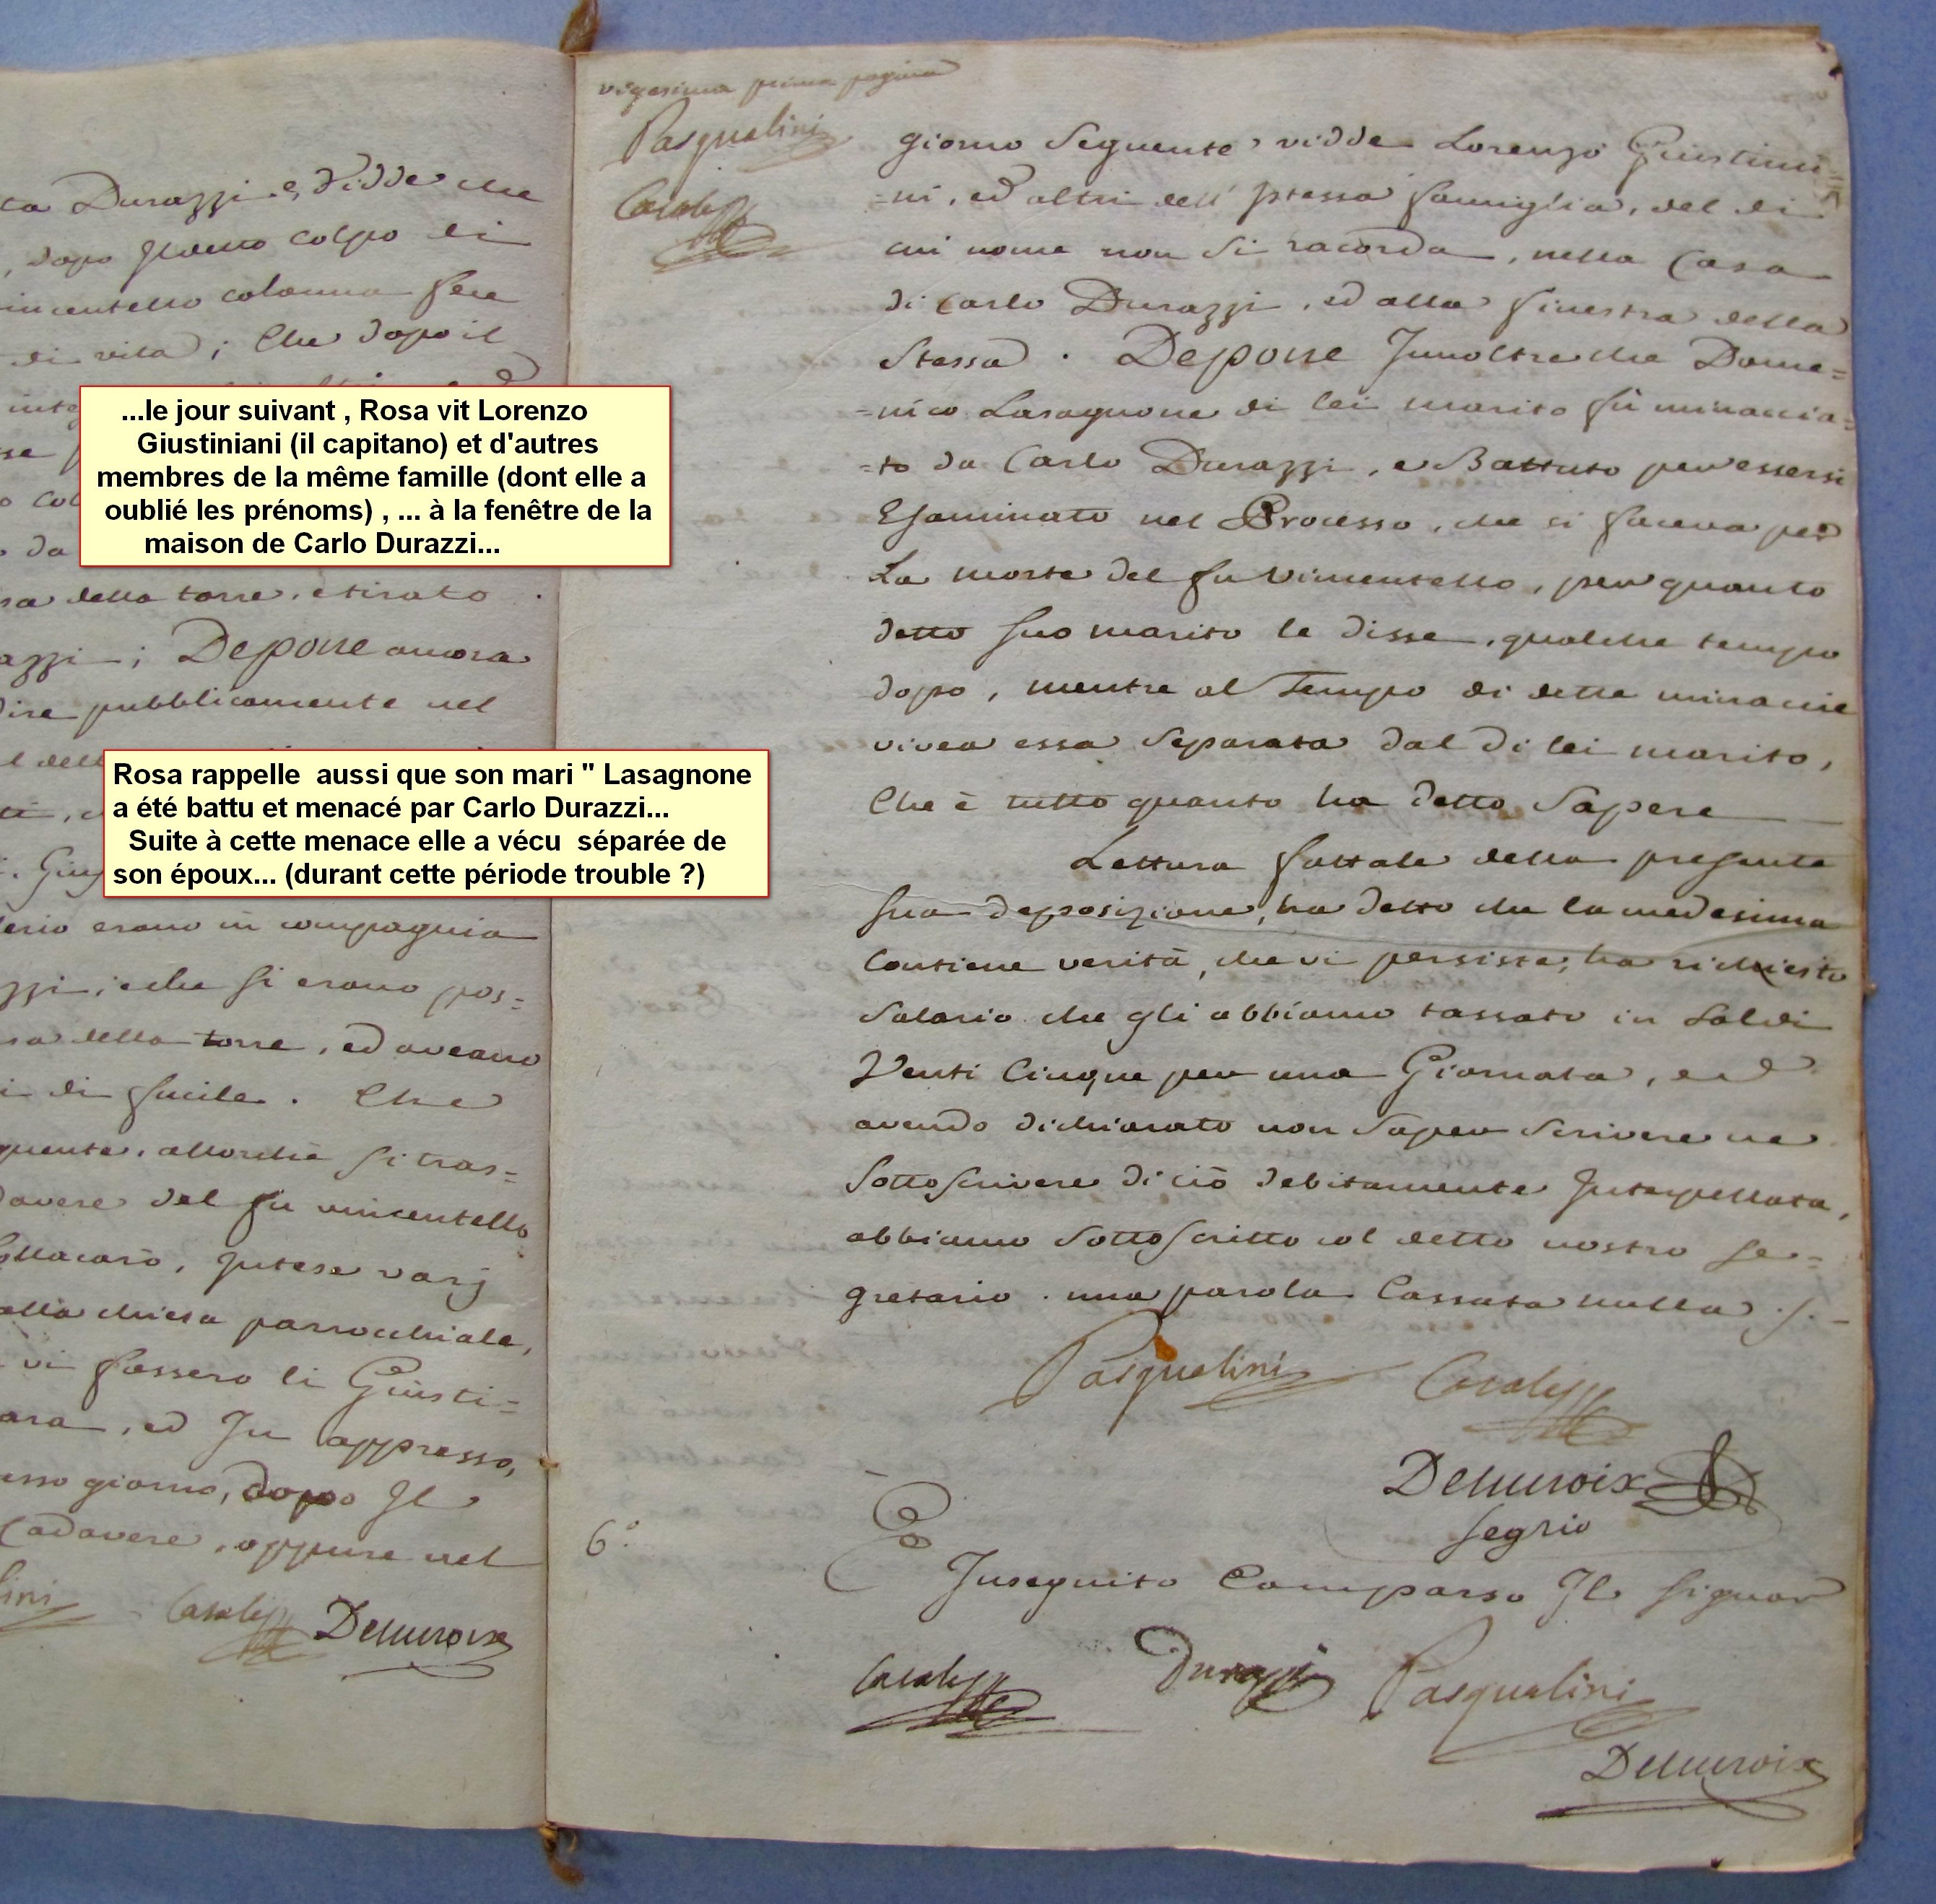 ca Durazzi e, vidde che
, dopo il detto colpo di
incentello colonna fece
di vita ; Che dopo il
...le jour suivant , Rosa vit Lorenzo
Giustiniani (il capitano) et d'autres
membres de la même famille (dont elle a
oublié les prénoms) , ... à la fenêtre de la
maison de Carlo Durazzi...
sa della torre, e tirato
azzi ; Depone ancora
dire pubblicamente nel
l dell
Rosa rappelle aussi que son mari " Lasagnone
a été battu et menacé par Carlo Durazzi...
Suite à cette menace elle a vécu séparée de
son époux... (durant cette période trouble ?)
erano in compagnia
zzi ; e che si erano pos=
sa della torre, ed aveano
i di fucile . Che
quente, allorchè si tras=
davere del fu vincentello
ollacarò, Intese varj
alla chiesa parrocchiale,
vi fossero li Giusti=
ara, ed In appresso,
esso giorno, doppo Il
Cadavere, oppure nel
lini Casalegg Delucroix
vigesima prima pagina
Pasqualini
Casale
giorno Seguente vidde Lorenzo Giustinia
=ni, ed altri dell' Istessa famiglia, del di
cui nome non si racorda, nella Casa
di Carlo Durazzi, ed alla finestra della
Stessa . Depone Innoltre che Dome=
=nico Lasagnone di lei marito fù minaccia=
=to da Carlo Durazzi, e Battuto per essersi
Esaminato nel Processo, che si faceva per
La morte del fu Vimentello, per quanto
detto suo marito le disse, qualche tempo
dopo, mentre al Tempo di dette minacie
vivea essa Separata dal di lei marito,
Che è tutto quanto ha detto Sapere
Lettura fattale della presente
sua deposizione, ha detto che la medesima
Contiene verità, che vi persiste, ha richiesto
Salario che gli abbiamo tassato in Soldi
Venti Cinque per una Giornata, ed
avendo dichiarato non Saper Scrivere ne
Sottoscrivere di ciò debitamente Interpellata,
abbiamo Sottoscritto col detto nostro Se=
gretario . una parola Cassata nulla ./.
Pasqualini Casale
Delucroix
Segrio
6.°
E Inseguito Comparso Il Signor
Casale Durazzi Pasqualini
Delucroix